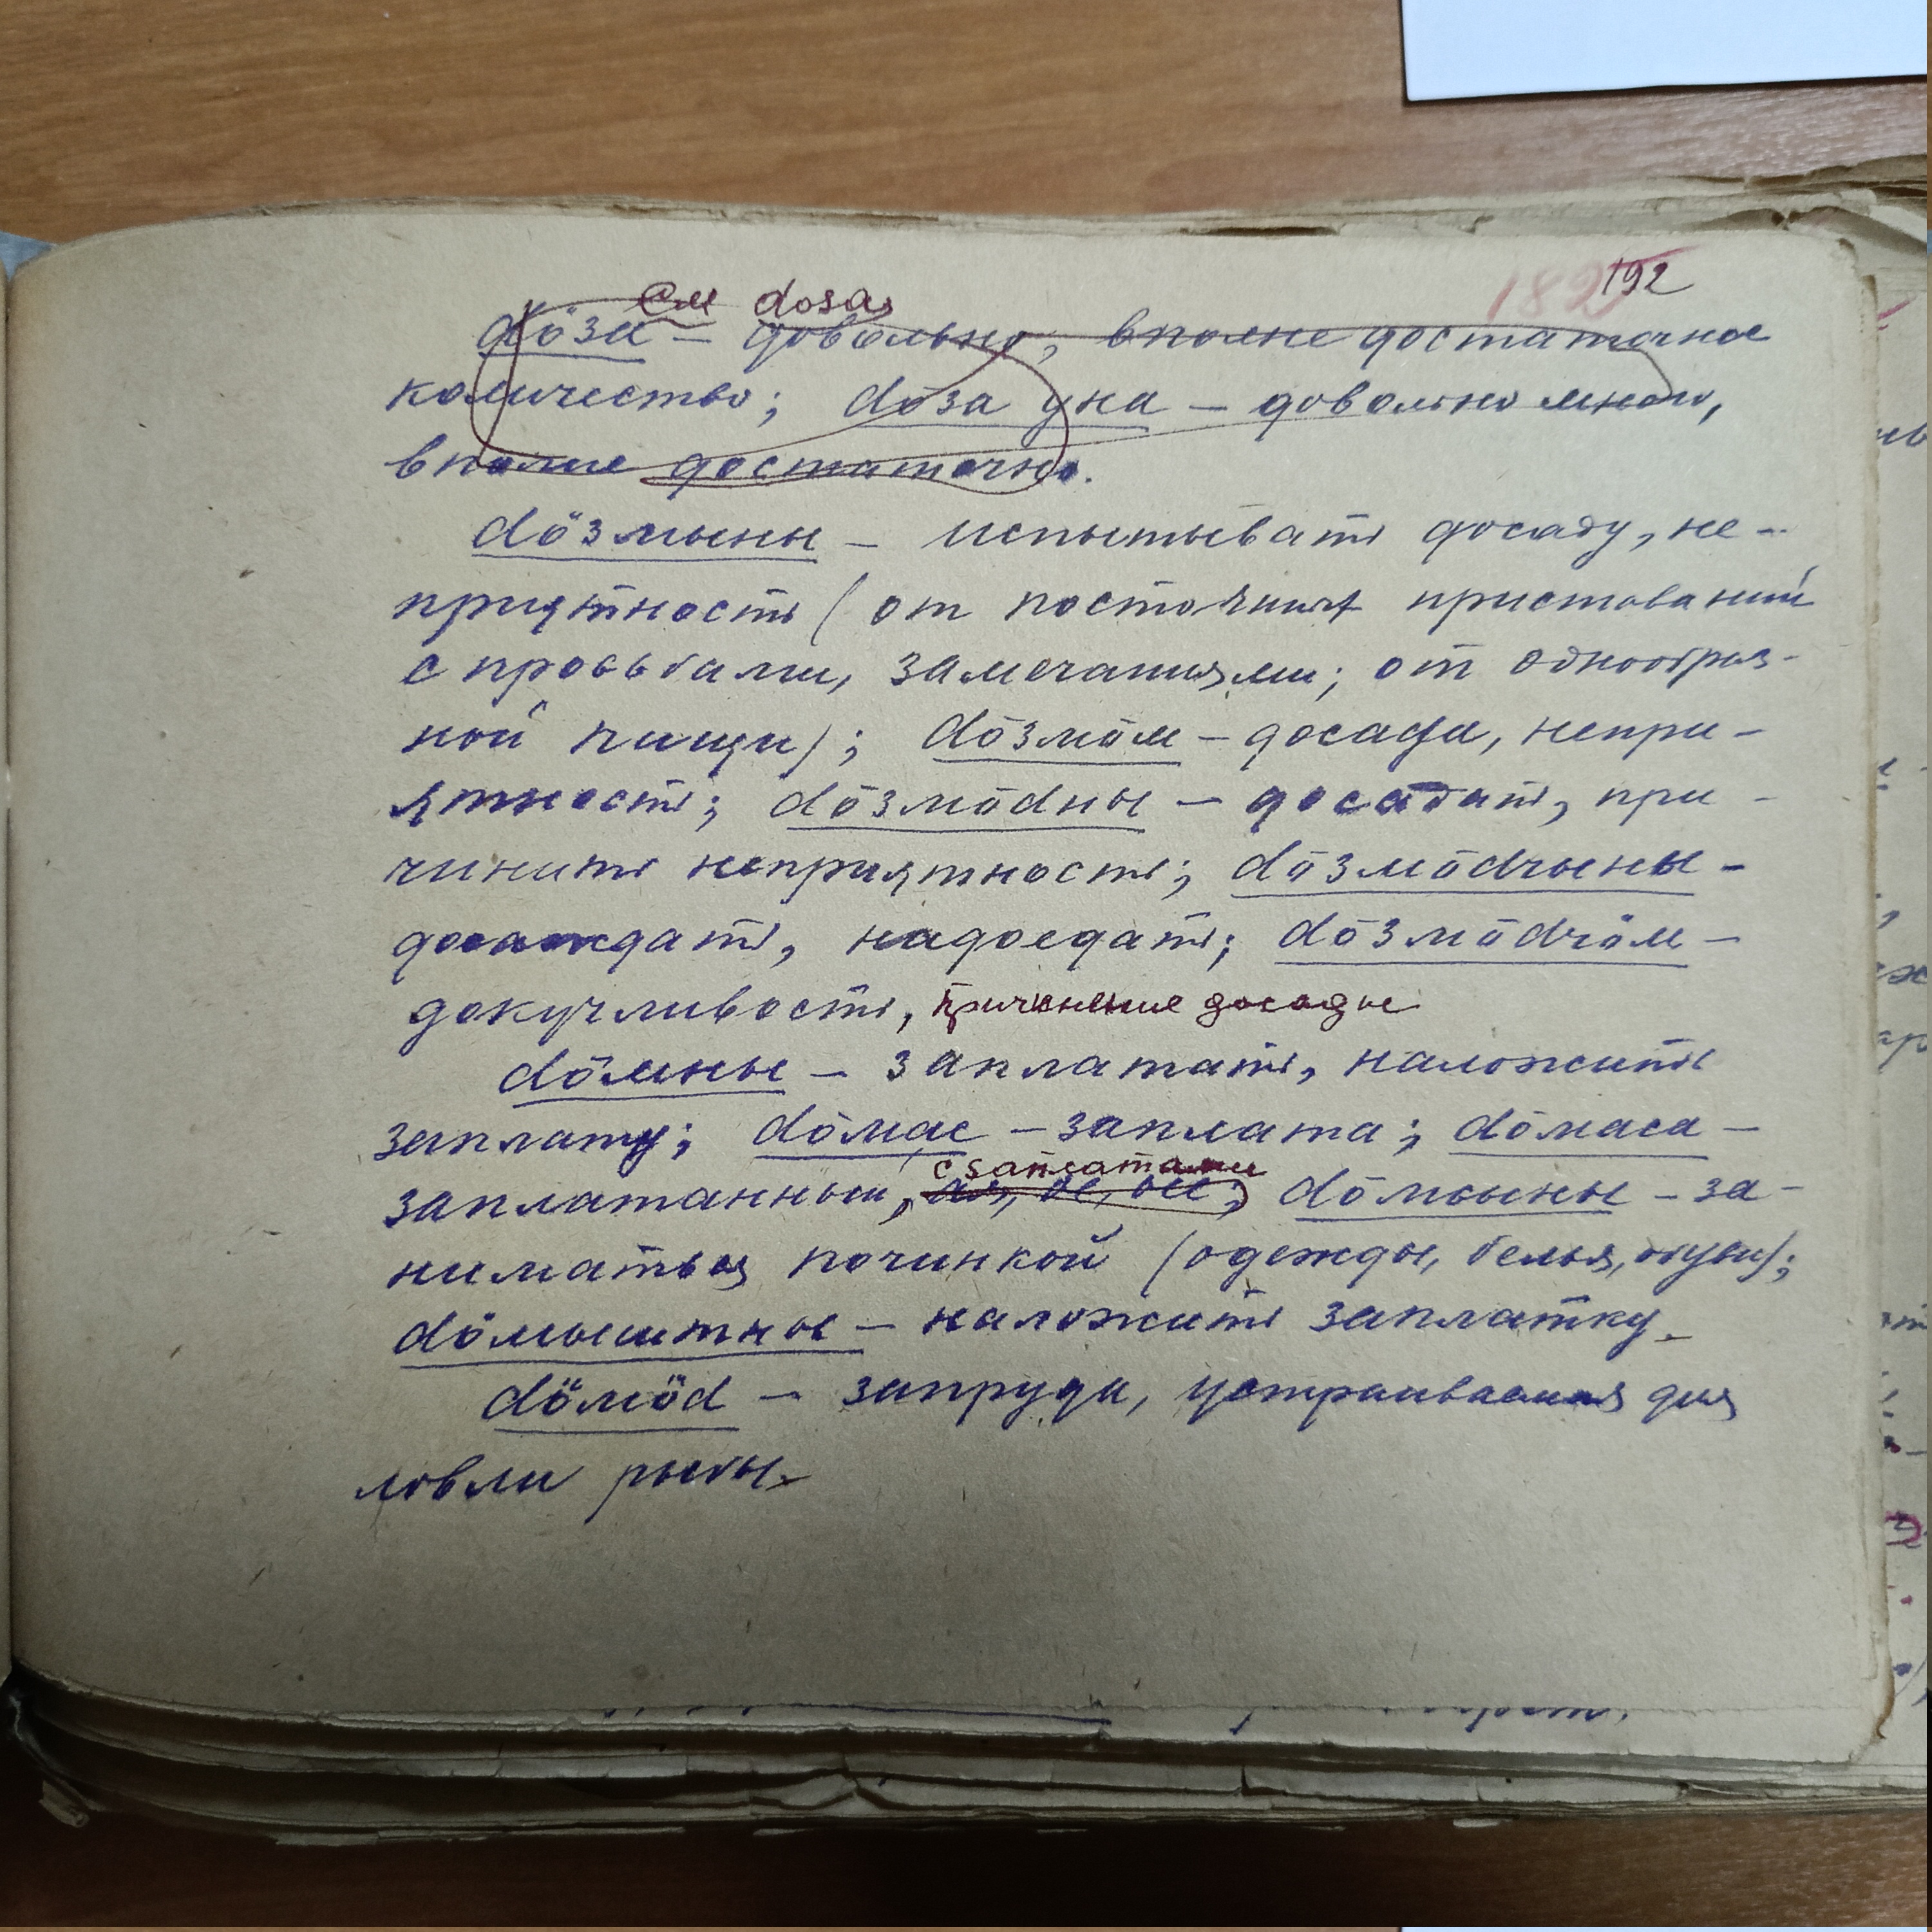 192
См доза
дӧза – довольно, вполне достаточное
количество; дӧза уна – довольно много,
вполне достаточно.
дӧзмыны – испытывать досаду, не-
приятность (от постоянных приставаний
с просьбами, замечаниями; от однообраз-
ной пищи); дӧзмӧм – досада, непри-
ятность; дӧзмӧдны – досадить, при-
чинить неприятность; дӧзмӧдчыны –
досаждать, надоедать; дӧзмӧдчӧм –
докучливость, причинение досады
дӧмны – заплатать, наложить
заплату; дӧмас – заплата; дӧмаса –
с заплатами
заплатанный, ая, ое, ые; дӧмсьыны – за-
ниматься починкой (одежды, белья, обуви);
дӧмыштны – наложить заплатку.
дӧмӧд – запруда, устраиваемая для
ловли рыбы.